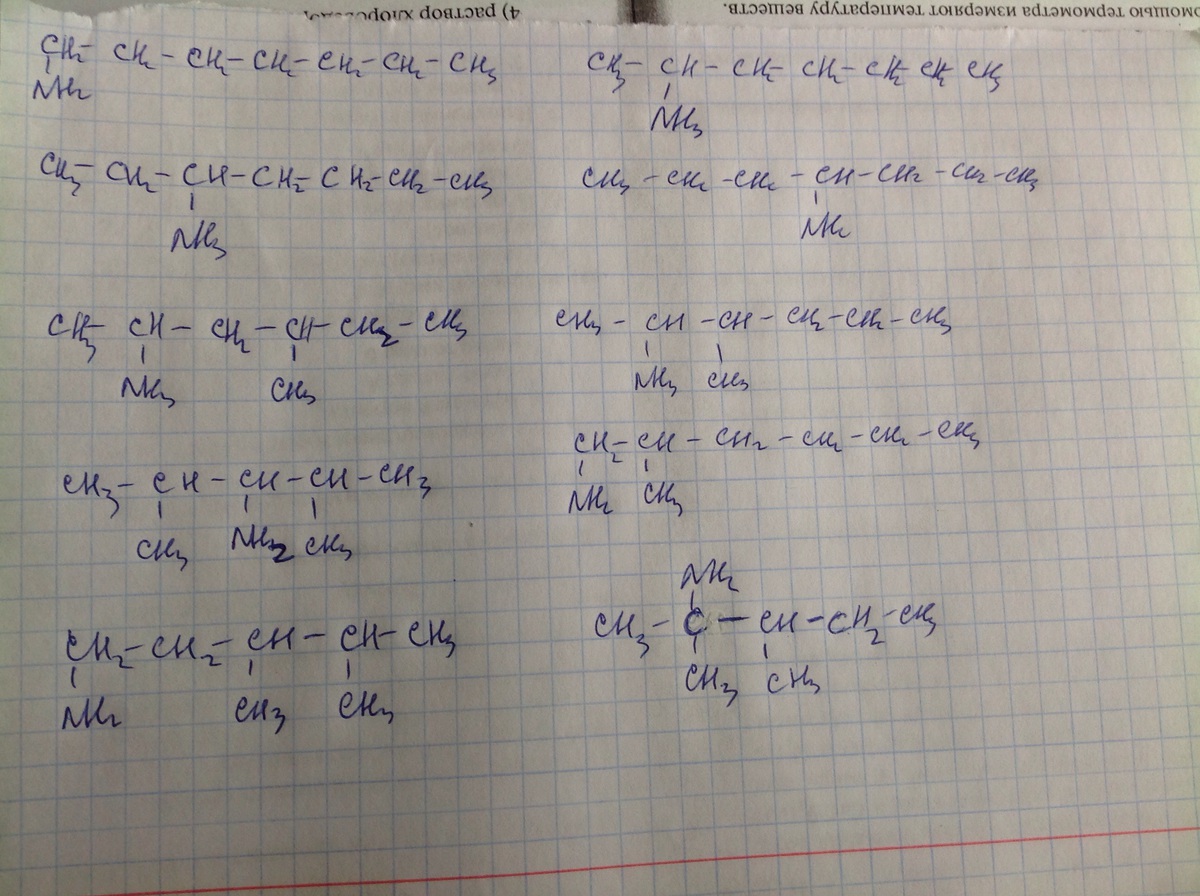 4) раствор
омощью термометра измеряют температуру веществ.
CH2- CH2 - CH2 - CH2 - CH2 - CH2 - CH3
NH2
CH3 - CH - CH2 - CH2 - CH2 CH2 CH3
NH3
CH3 - CH2 - CH - CH2 - CH2 - CH2 - CH3
NH3
CH3 - CH2 - CH2 - CH - CH2 - CH2 - CH3
NH2
CH3 - CH - CH2 - CH - CH2 - CH3
NH3 CH3
CH3 - CH - CH - CH2 - CH2 - CH3
NH3 CH3
CH3 - CH - CH - CH - CH3
CH3 NH2 CH3
CH2 - CH - CH2 - CH2 - CH2 - CH3
NH2 CH3
CH2 - CH2 - CH - CH - CH3
NH2 CH3 CH3
NH2
CH3 - C - CH - CH2 - CH3
CH3 CH3